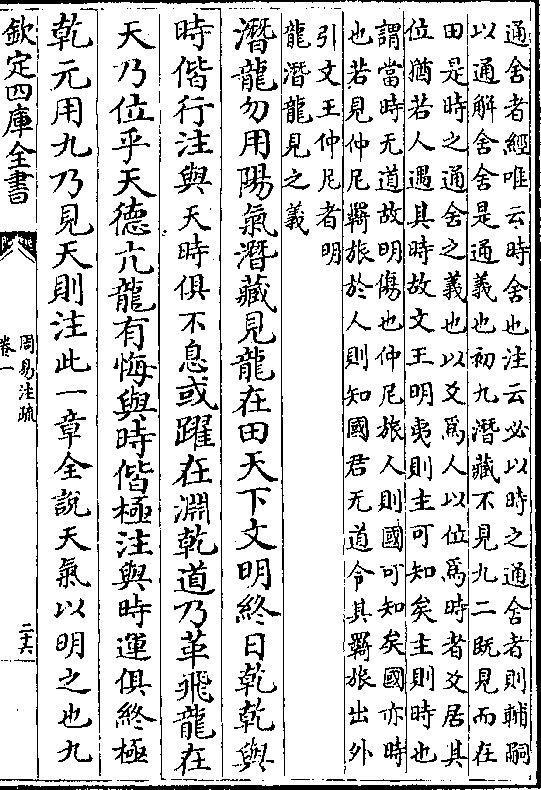 通舍者經唯云時舍也注云必以時之通舍者則輔嗣
以通解舍舍是通義也初九潛藏不見九二既見而在
田是時之通舍之義也以爻爲人以位爲時者爻居其
位猶若人遇其時故文王明夷則主可知矣主則時也
謂當時无道故明傷也仲尼旅人則國可知矣國亦時
也若見仲尼羇旅於人則知國君无道令其羇旅出外
引文王仲尼者明
龍潛龍見之義
潛龍勿用陽氣潛藏見龍在田天下文明終日乾乾與
時偕行注與天時俱不息或躍在淵乾道乃革飛龍在
天乃位乎天德亢龍有悔與時偕極注與時運俱終極
乾元用九乃見天則注此一章全說天氣以明之也九
欽定四庫全書
周易注疏
卷一
二十六